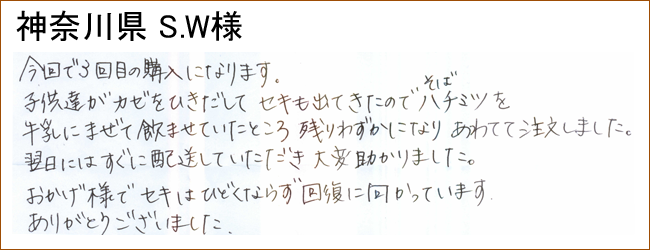 神奈川県 S.W様
今回で3回目の購入になります。
そば
子供達がカゼをひきだして セキも出てきたので ハチミツを
牛乳にまぜて飲ませていたところ 残りわずかになり あわてて注文しました。
翌日にはすぐに配送していただき 大変助かりました。
おかげ様で セキは ひどくならず 回復に向かっています.
ありがとうございました.